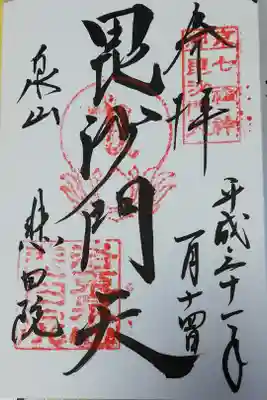 奉拝
平成三十一年
一月十四日
毘沙門天
泉山
悲田院